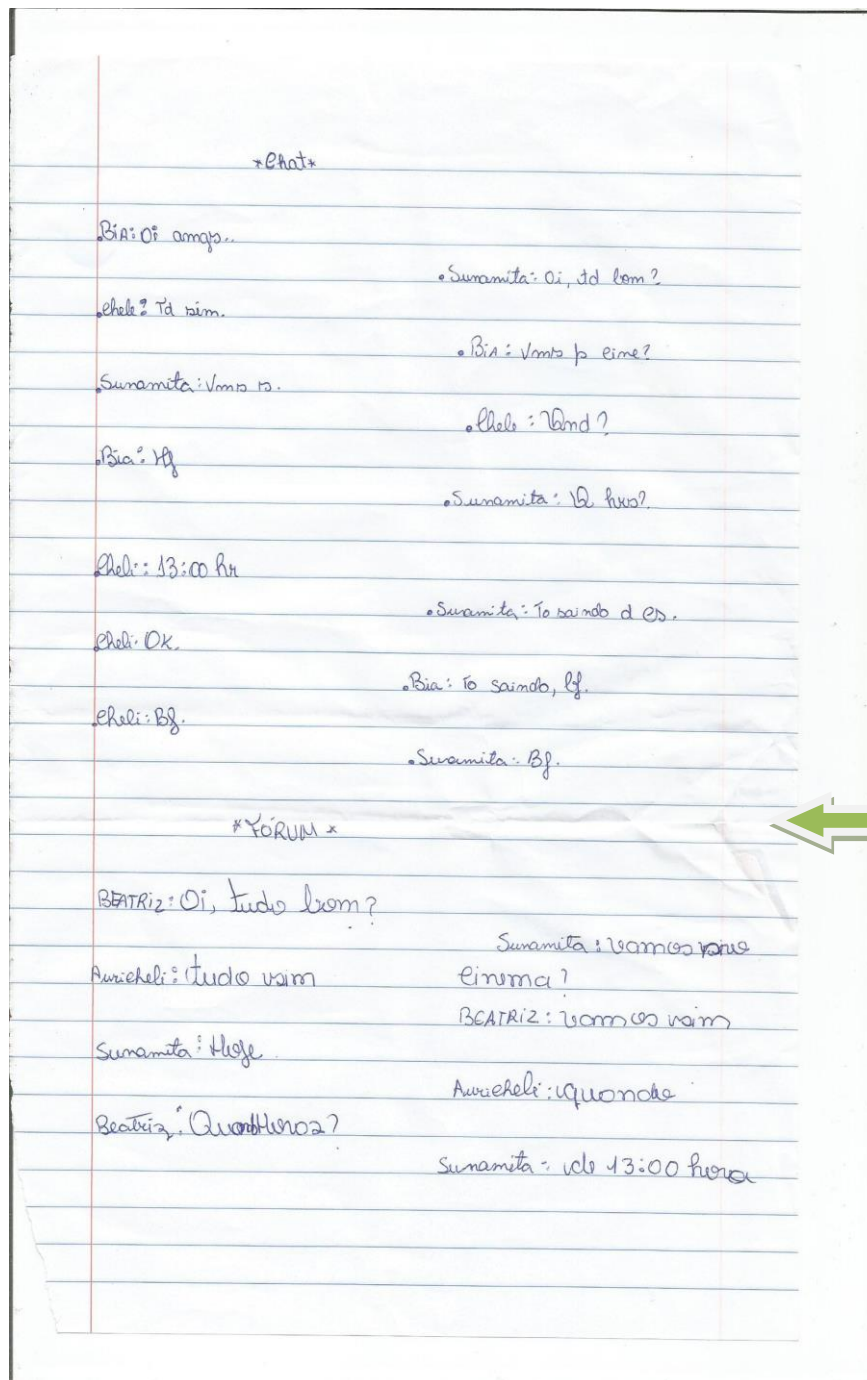 *Chat*
.BiA: Oi amgs..
.Sunamita: Oi, td bom?
.Cheli: Td sim.
.BiA: Vms p cine?
.Sunamita: Vms s.
.Cheli: Qand?
.Bia: Hj
.Sunamita: Q hrs?
Cheli: 13:00 hr
.Sunamita: To saindo d cs.
Cheli: OK.
.Bia: To saindo, bj.
.Cheli: Bj.
.Sunamita: Bj.
*FÓRUM*
BEATRiz: Oi, tudo bom?
Sunamita: vamos
Auricheli: tudo sim
Cinema?
BEATRiz: vamos sim
Sunamita: Hoje
Auricheli: quando
Beatriz:
Sunamita: de 13:00 hora